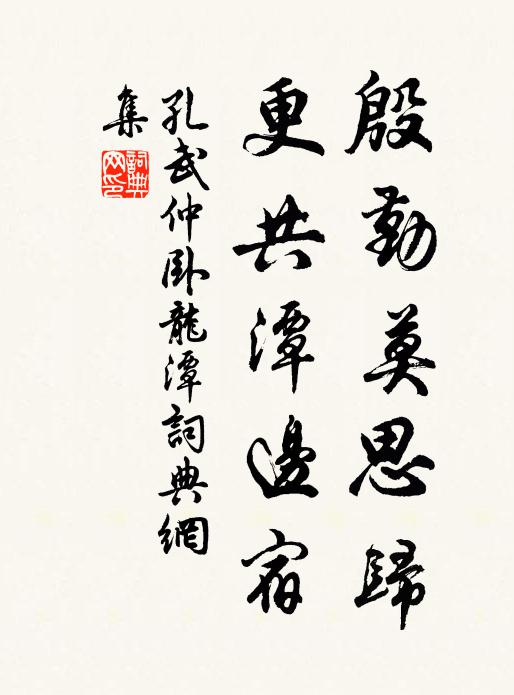 殷勤莫思歸
更共潭邊宿
孔武仲卧龍潭詞典網
集
詞典
网印